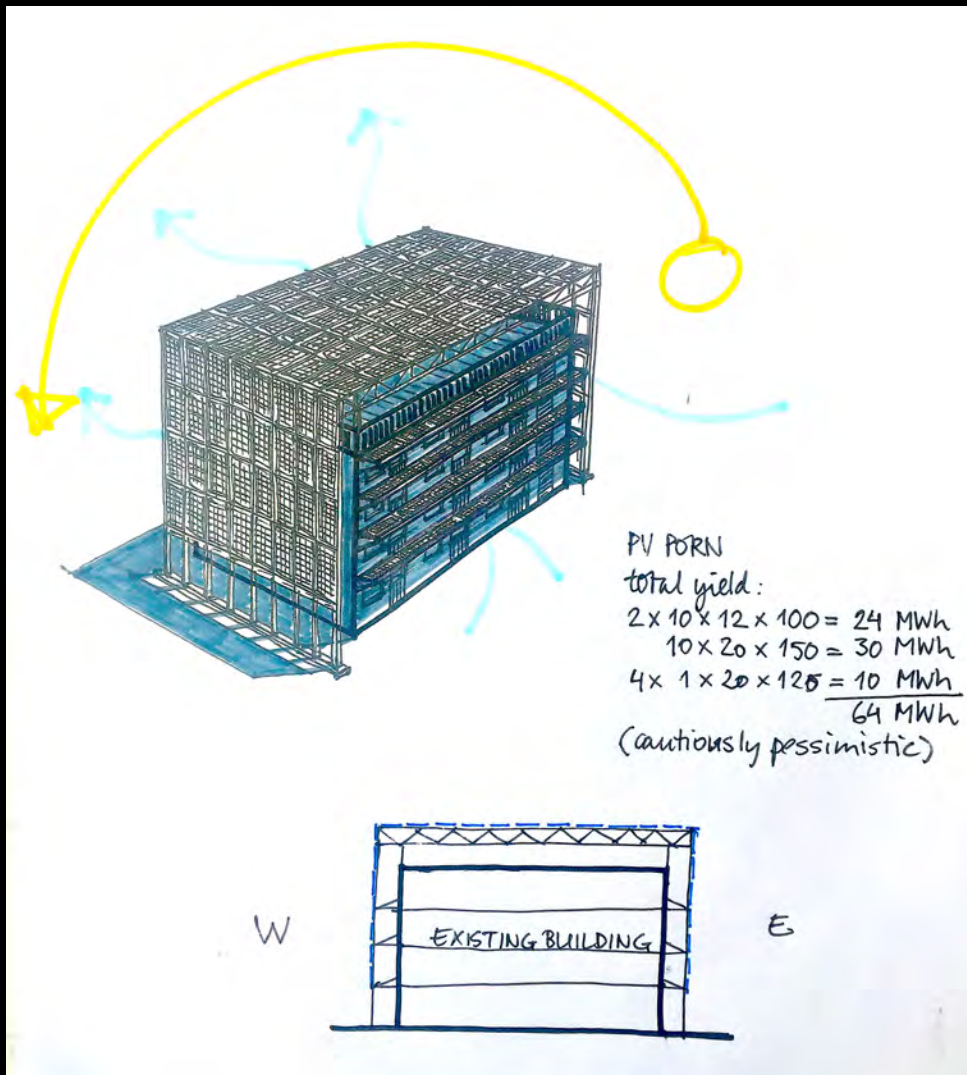 PV PORN
total yield:
2 x 10 x 12 x 100 = 24 MWh
10 x 20 x 150 = 30 MWh
4 x 1 x 20 x 125 = 10 MWh
64 MWh
(cautiously pessimistic)
W
EXISTING BUILDING
E